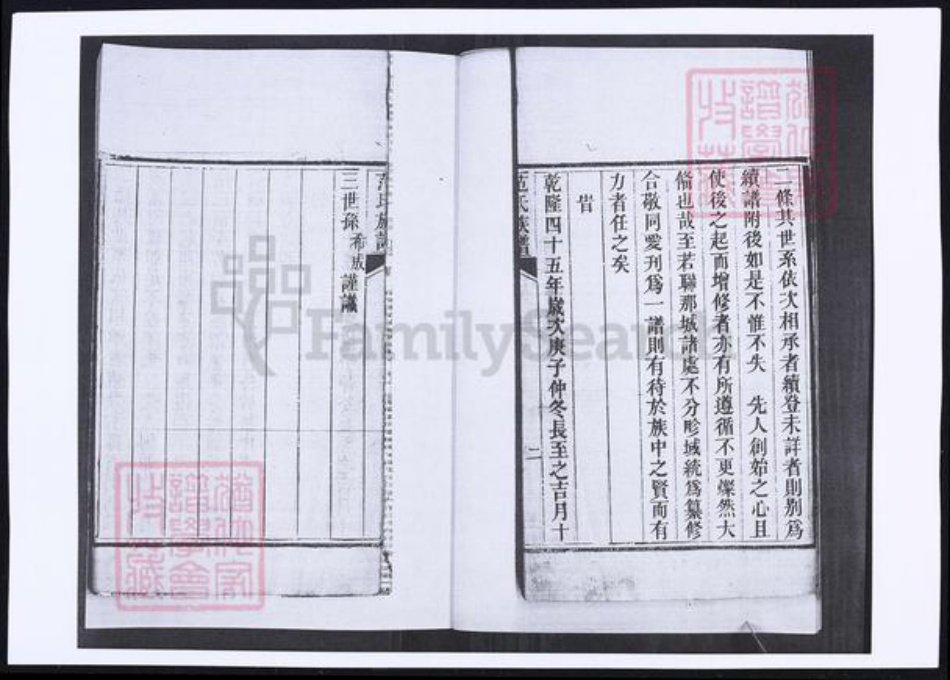 一條其世系依次相承者續登未詳者則別為
續譜附後如是不惟不失　先人創始之心且
使後之起而增修者亦有所遵循不更燦然大
偹也哉至若聯那城諸處不分畛域統為纂修
合敬同愛刋為一譜則有待於族中之賢而有
力者任之矣
旹
乾隆四十五年歲次庚子仲冬長至之吉月十
范氏族譜
二
三世孫希 謹識
范氏族譜
FamilySearch